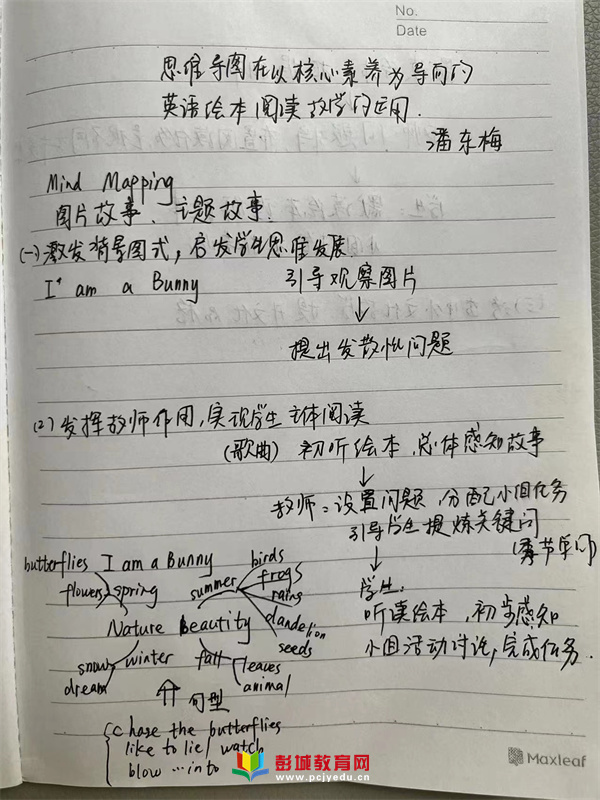 No.
Date
思维导图在以核心素养为导向的
英语绘本阅读教学的运用.
潘东梅
Mind Mapping
图片故事、主题故事.
(一)激发背景图式,启发学生思维发展
I am a Bunny 引导观察图片
↓
提出发散性问题
(2)发挥教师作用,实现学生主体阅读
(歌曲) 初听绘本,总体感知故事
↓
教师:设置问题,分配小组任务
引导学生提炼关键词
↓
学生:
听读绘本,初步感知
小组活动讨论,完成任务.
butterflies I am a Bunny birds
flowers spring summer frogs
rains
Nature Beautity dandelion
seeds
snow winter fall leaves
dream animal
⇑ 句型
chase the butterflies
like to lie/ watch
blow …into
彭城教育网
www.pcjyedu.cn
Maxleaf